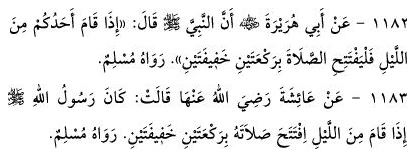 ١١٨٢ – عَنْ أَبِي هُرَيْرَةَ ﵁ أَنَّ النَّبِيَّ ﷺ قَالَ: «إِذَا قَامَ أَحَدُكُمْ مِنَ
اللَّيْلِ فَلْيَفْتَتِحِ الصَّلَاةَ بِرَكْعَتَيْنِ خَفِيفَتَيْنِ». رَوَاهُ مُسْلِمٌ.
١١٨٣ – عَنْ عَائِشَةَ رَضِيَ اللهُ عَنْهَا قَالَتْ: كَانَ رَسُولُ اللهِ ﷺ
إِذَا قَامَ مِنَ اللَّيْلِ اِفْتَتَحَ صَلَاتَهُ بِرَكْعَتَيْنِ خَفِيفَتَيْنِ. رَوَاهُ مُسْلِمٌ.